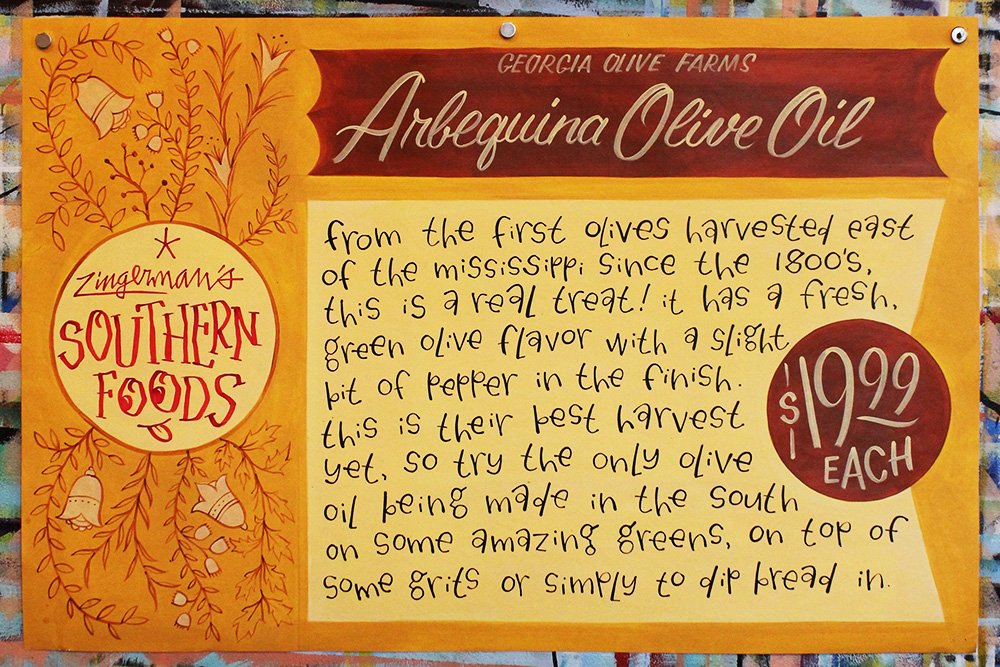 GEORGIA OLIVE FARMS
Arbequina Olive Oil
zingerman's
SOUTHERN
FOODS
from the first olives harvested east
of the mississippi since the 1800's,
this is a real treat! it has a fresh,
green olive flavor with a slight
bit of pepper in the finish.
this is their best harvest
yet, so try the only olive
oil being made in the south
on some amazing greens, on top of
some grits or simply to dip bread in.
$19.99
EACH